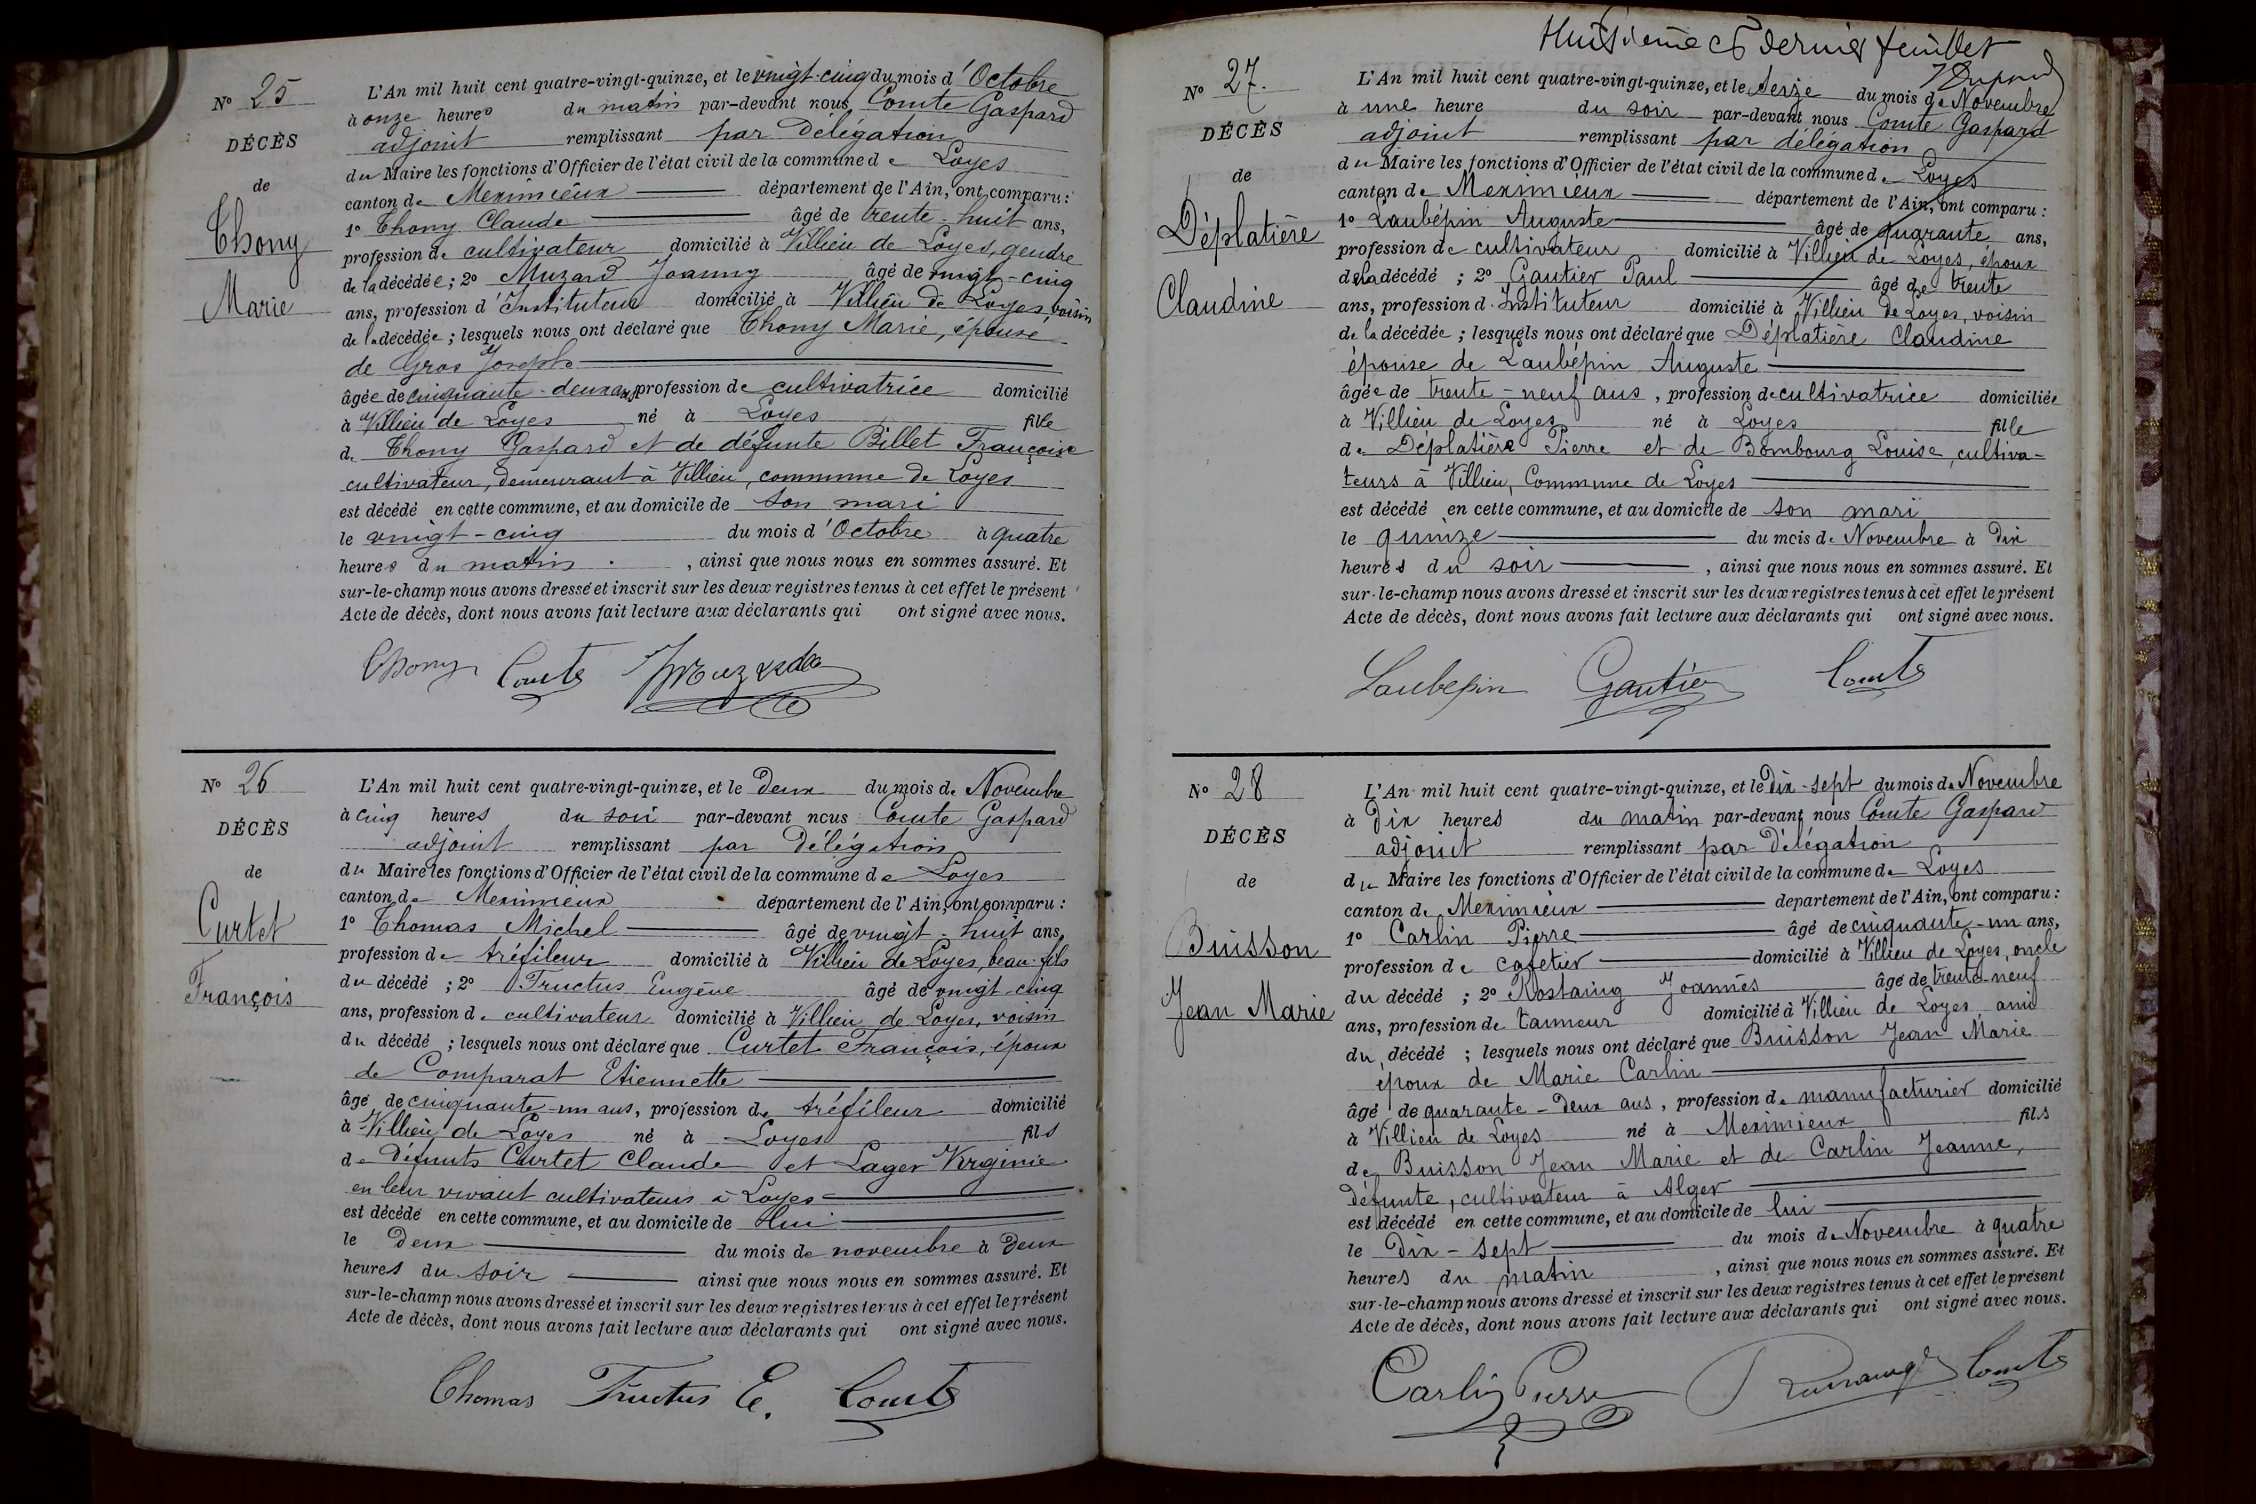 N° 25
DÉCÈS
de
Thony
Marie
L'An mil huit cent quatre-vingt-quinze, et le vingt-cinq du mois d'Octobre
à onze heures du matin par-devant nous Comte Gaspard
adjoint remplissant par délégation
du Maire les fonctions d'Officier de l'état civil de la commune de Loyes
canton de Meximieux département de l'Ain, ont comparu :
1° Thony Claude âgé de trente-huit ans,
profession de cultivateur domicilié à Villieu de Loyes, gendre
de la décédée ; 2° Muzard Joanny âgé de vingt-cinq
ans, profession d'Instituteur domicilié à Villieu de Loyes, voisin
de la décédée ; lesquels nous ont déclaré que Thony Marie, épouse
de Gros Joseph
âgée de cinquante-deux ans, profession de cultivatrice domicilié
à Villieu de Loyes né à Loyes fille
de Thony Gaspard et de défunte Billet Françoise
cultivateur, demeurant à Villieu, commune de Loyes
est décédé en cette commune, et au domicile de son mari
le vingt-cinq du mois d'Octobre à quatre
heures du matin, ainsi que nous nous en sommes assuré. Et
sur-le-champ nous avons dressé et inscrit sur les deux registres tenus à cet effet le présent
Acte de décès, dont nous avons fait lecture aux déclarants qui ont signé avec nous.
Thony Comte Muzard
N° 26
DÉCÈS
de
Curtet
François
L'An mil huit cent quatre-vingt-quinze, et le deux du mois de Novembre
à cinq heures du soir par-devant nous Comte Gaspard
adjoint remplissant par délégation
du Maire les fonctions d'Officier de l'état civil de la commune de Loyes
canton de Meximieux département de l'Ain, ont comparu :
1° Thomas Michel âgé de vingt-huit ans,
profession de tréfileur domicilié à Villieu de Loyes, beau-fils
du décédé ; 2° Fructus Eugène âgé de vingt-cinq
ans, profession de cultivateur domicilié à Villieu de Loyes, voisin
du décédé ; lesquels nous ont déclaré que Curtet François, époux
de Comparat Etiennette
âgé de cinquante-un ans, profession de tréfileur domicilié
à Villieu de Loyes né à Loyes fils
de défunts Curtet Claude et Lager Virginie
en leur vivant cultivateurs à Loyes
est décédé en cette commune, et au domicile de lui
le deux du mois de novembre à deux
heures du soir ainsi que nous nous en sommes assuré. Et
sur-le-champ nous avons dressé et inscrit sur les deux registres tenus à cet effet le présent
Acte de décès, dont nous avons fait lecture aux déclarants qui ont signé avec nous.
Thomas Fructus E. Comte
Huitième et dernier feuillet
N° 27.
DÉCÈS
de
Déplatière
Claudine
L'An mil huit cent quatre-vingt-quinze, et le seize du mois de Novembre
à une heure du soir par-devant nous Comte Gaspard
adjoint remplissant par délégation
du Maire les fonctions d'Officier de l'état civil de la commune de Loyes
canton de Meximieux département de l'Ain, ont comparu :
1° Laubépin Auguste âgé de quarante ans,
profession de cultivateur domicilié à Villieu de Loyes, époux
de la décédé ; 2° Gautier Paul âgé de trente
ans, profession d'Instituteur domicilié à Villieu de Loyes, voisin
de la décédée ; lesquels nous ont déclaré que Déplatière Claudine
épouse de Laubépin Auguste
âgée de trente-neuf ans, profession de cultivatrice domiciliée
à Villieu de Loyes né à Loyes fille
de Déplatière Pierre et de Bombourg Louise, cultiva-
teurs à Villieu, Commune de Loyes
est décédé en cette commune, et au domicile de son mari
le quinze du mois de Novembre à dix
heures du soir, ainsi que nous nous en sommes assuré. Et
sur-le-champ nous avons dressé et inscrit sur les deux registres tenus à cet effet le présent
Acte de décès, dont nous avons fait lecture aux déclarants qui ont signé avec nous.
Laubepin Gautier Comte
N° 28
DÉCÈS
de
Buisson
Jean Marie
L'An mil huit cent quatre-vingt-quinze, et le dix-sept du mois de Novembre
à dix heures du matin par-devant nous Comte Gaspard
adjoint remplissant par délégation
du Maire les fonctions d'Officier de l'état civil de la commune de Loyes
canton de Meximieux département de l'Ain, ont comparu :
1° Carlin Pierre âgé de cinquante-un ans,
profession de cafetier domicilié à Villieu de Loyes, oncle
du décédé ; 2° Rostaing Joannès âgé de trente-neuf
ans, profession de tanneur domicilié à Villieu de Loyes, ami
du décédé ; lesquels nous ont déclaré que Buisson Jean Marie
époux de Marie Carlin
âgé de quarante-deux ans, profession de manufacturier domicilié
à Villieu de Loyes né à Meximieux fils
de Buisson Jean Marie et de Carlin Jeanne,
défunte, cultivateur à Alger
est décédé en cette commune, et au domicile de lui
le dix-sept du mois de Novembre à quatre
heures du matin, ainsi que nous nous en sommes assuré. Et
sur-le-champ nous avons dressé et inscrit sur les deux registres tenus à cet effet le présent
Acte de décès, dont nous avons fait lecture aux déclarants qui ont signé avec nous.
Carlin Pierre Comte